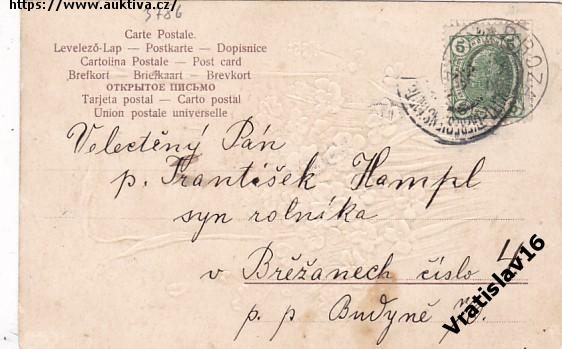 Positiv: https://www.auktiva.cz/
3786
Carte Postale.
Levelező-Lap — Postkarte — Dopisnice
Cartolina Postale — Post card
Brefkort — Briefkaart — Brevkort
ОТКРЫТОЕ ПИСЬМО
Tarjeta postal — Carto postal
Union postale universelle
5
Velectěný Pán
p. František Hampl
syn rolníka
v Brěžanech číslo 4
p. p Budyně
Vratislav16